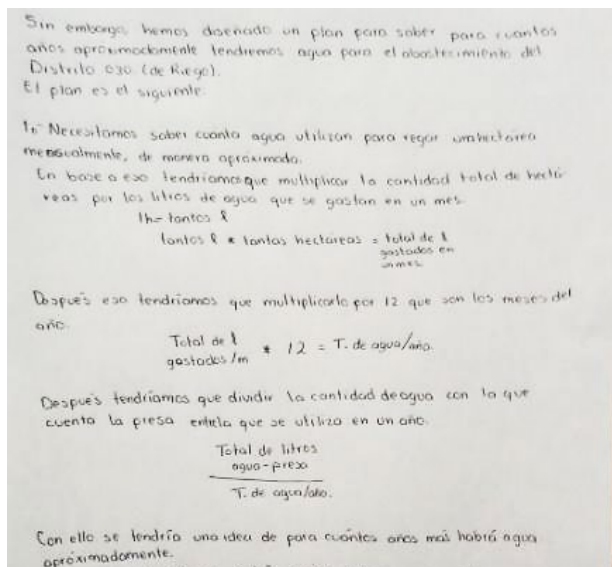 Sin embargo, hemos diseñado un plan para saber para cuantos
años aproximadamente tendremos agua para el abastecimiento del
Distrito 030 (de Riego).
El plan es el siguiente:
1.- Necesitamos saber cuanta agua utilizan para regar una hectárea
mensualmente, de manera aproximada.
En base a eso tendriamos que multiplicar la cantidad total de hectá-
reas por los litros de agua que se gastan en un mes.
1h = tantos l
tantos l * tantas hectareas = total de l
gastados en
un mes
Después eso tendríamos que multiplicarlo por 12 que son los meses del
año.
Total de l
gastados/m * 12 = T. de agua/año.
Después tendríamos que dividir la cantidad de agua con la que
cuenta la presa entre la que se utiliza en un año.
Total de litros
agua-presa
T. de agua/año.
Con ello se tendría una idea de para cuántos años más habrá agua
apróximadamente.